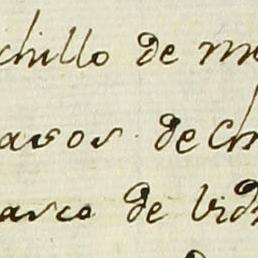 chillo de me
asos de ch
arco de vid